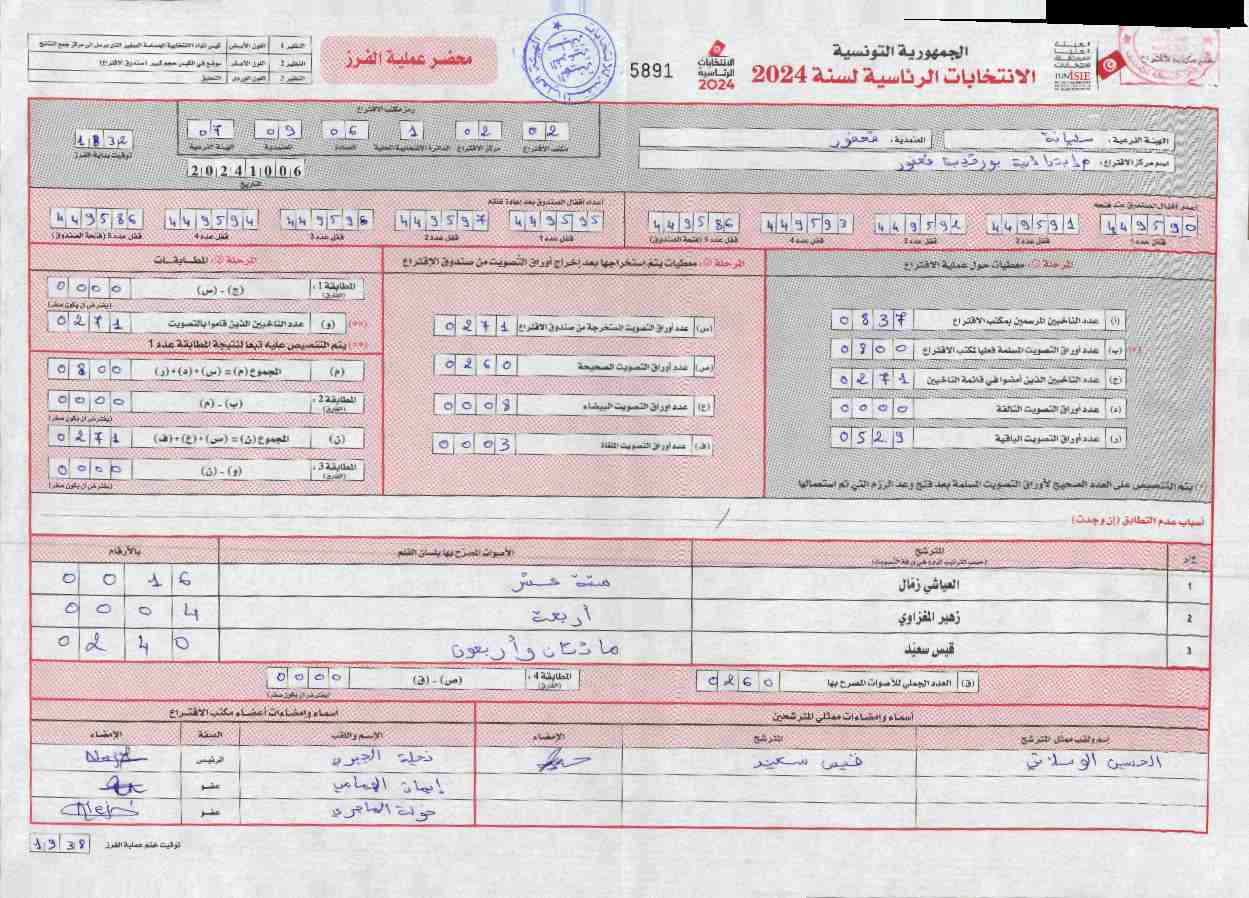 الجمهورية التونسية
الانتخابات الرئاسية لسنة 2024
الانتخابات الرئاسية 2024
5891
محضر عملية الفرز
النظير 1 اللون الأبيض
النظير 2 اللون الأصفر
النظير 3 اللون الوردي التعليق
الهيئة الفرعية: سليانة
المعتمدية: قعفور
اسم مركز الاقتراع:
رمز مكتب الاقتراع
02 02 1 06 09 07
مكتب الاقتراع مركز الاقتراع الدائرة الانتخابية المحلية العمادة المعتمدية الهيئة الفرعية
1832
توقيت بداية الفرز
20241006
التاريخ
أعداد أقفال الصندوق عند فتحه
449590 449591 449592 449593 449586
قفل عدد 1 قفل عدد 2 قفل عدد 3 قفل عدد 4 قفل عدد 5 (فتحة الصندوق)
أعداد أقفال الصندوق بعد إعادة غلقه
449595 449597 449596 449594 449586
قفل عدد 1 قفل عدد 2 قفل عدد 3 قفل عدد 4 قفل عدد 5 (فتحة الصندوق)
المرحلة 1: معطيات حول عملية الاقتراع
(أ) عدد الناخبين المرسمين بمكتب الاقتراع 0837
(ب) عدد أوراق التصويت المسلمة فعليا لمكتب الاقتراع 0800
(ج) عدد الناخبين الذين أمضوا في قائمة الناخبين 0271
(د) عدد أوراق التصويت التالفة 0000
(ر) عدد أوراق التصويت الباقية 0529
(*) يتم التنصيص على العدد الصحيح لأوراق التصويت المسلمة بعد فتح وعد الرزم التي تم استعمالها
المرحلة 2: معطيات يتم استخراجها بعد إخراج أوراق التصويت من صندوق الاقتراع
(س) عدد أوراق التصويت المستخرجة من صندوق الاقتراع 0271
(ص) عدد أوراق التصويت الصحيحة 0260
(ع) عدد أوراق التصويت البيضاء 0008
(ف) عدد أوراق التصويت الملغاة 0003
المرحلة 3: المطابقات
المطابقة 1: (الفارق) (ج) - (س) 0000
(يفترض أن يكون صفر)
(**) (و) عدد الناخبين الذين قاموا بالتصويت 0271
(**) يتم التنصيص عليه تبعا لنتيجة المطابقة عدد 1
(م) المجموع (م) = (س) + (د) + (ر) 0800
المطابقة 2: (الفارق) (ب) - (م) 0000
(يفترض أن يكون صفر)
(ن) المجموع (ن) = (ص) + (ع) + (ف) 0271
المطابقة 3: (الفارق) (و) - (ن) 0000
(يفترض أن يكون صفر)
أسباب عدم التطابق (إن وجدت) /
ع/ر المترشح الأصوات المصرح بها بلسان القلم بالأرقام
1 العياشي زمّال ستة عشر 0016
2 زهير المغزاوي أربعة 0004
3 قيس سعيّد مائتان وأربعون 0240
(ق) العدد الجملي للأصوات المصرح بها 0260
المطابقة 4: (الفارق) (ص) - (ق) 0000
(يفترض أن يكون صفر)
أسماء وإمضاءات ممثلي المترشحين
اسم ولقب ممثل المترشح المترشح الإمضاء
الحسين الوسلاتي قيس سعيد
أسماء وإمضاءات أعضاء مكتب الاقتراع
الاسم واللقب الصفة الإمضاء
نحلة الجبري الرئيس
إيمان الهمامي عضو
خولة الماجري عضو
توقيت ختم عملية الفرز 1938